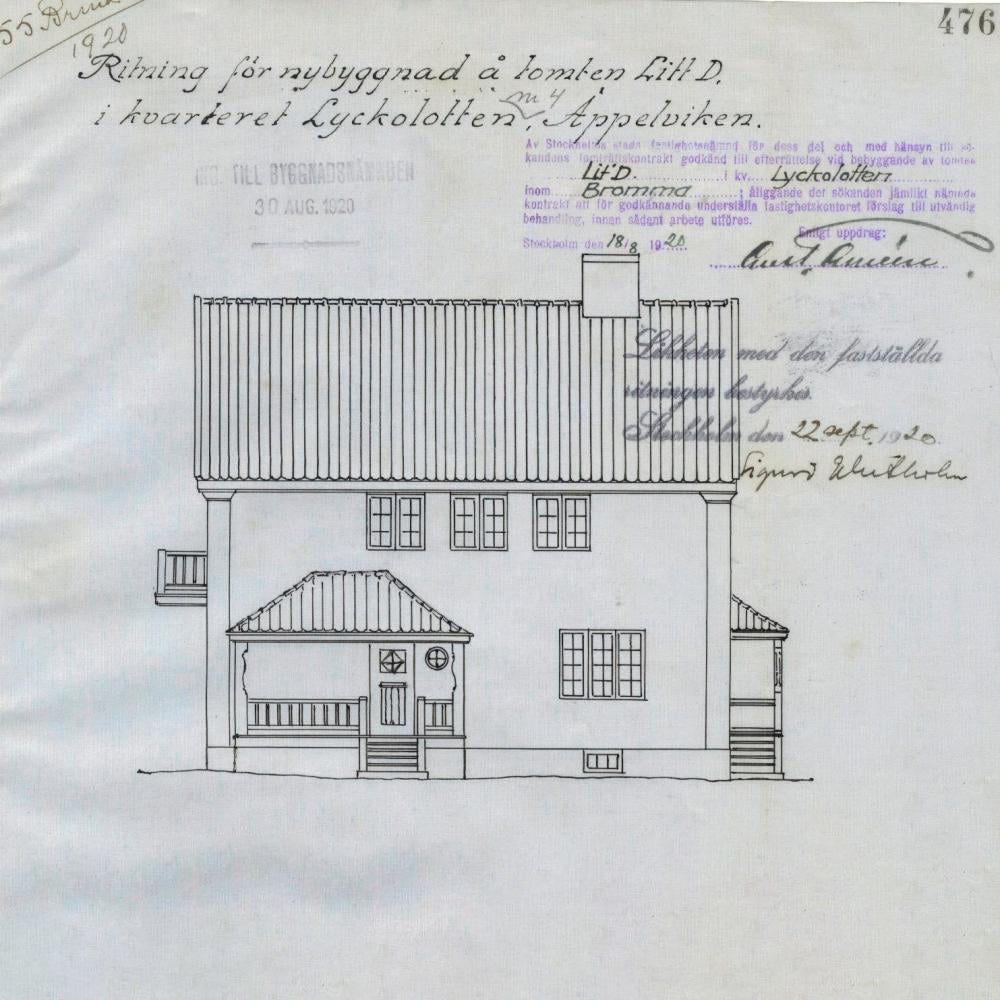 55
1920
476
Ritning för nybyggnad å tomten Litt D.
i kvarteret Lyckolotten, nr 4 Äppelviken.
INK. TILL BYGGNADSNÄMNDEN
30 AUG. 1920
Av Stockholms stads fastighetsnämnd för dess del och med hänsyn till sö-
kandens tomträttskontrakt godkänd till efterrättelse vid bebyggande av tomten
Lit D. i kv. Lyckolotten
inom Bromma ; åliggande det sökanden jämlikt nämnda
kontrakt att för godkännande underställa fastighetskontoret förslag till utvändig
behandling, innan sådant arbete utföres.
Enligt uppdrag:
Stockholm den 18/8 1920.
Likheten med den fastställda
ritningen bestyrkes.
Stockholm den 22 sept. 1920
Sigurd